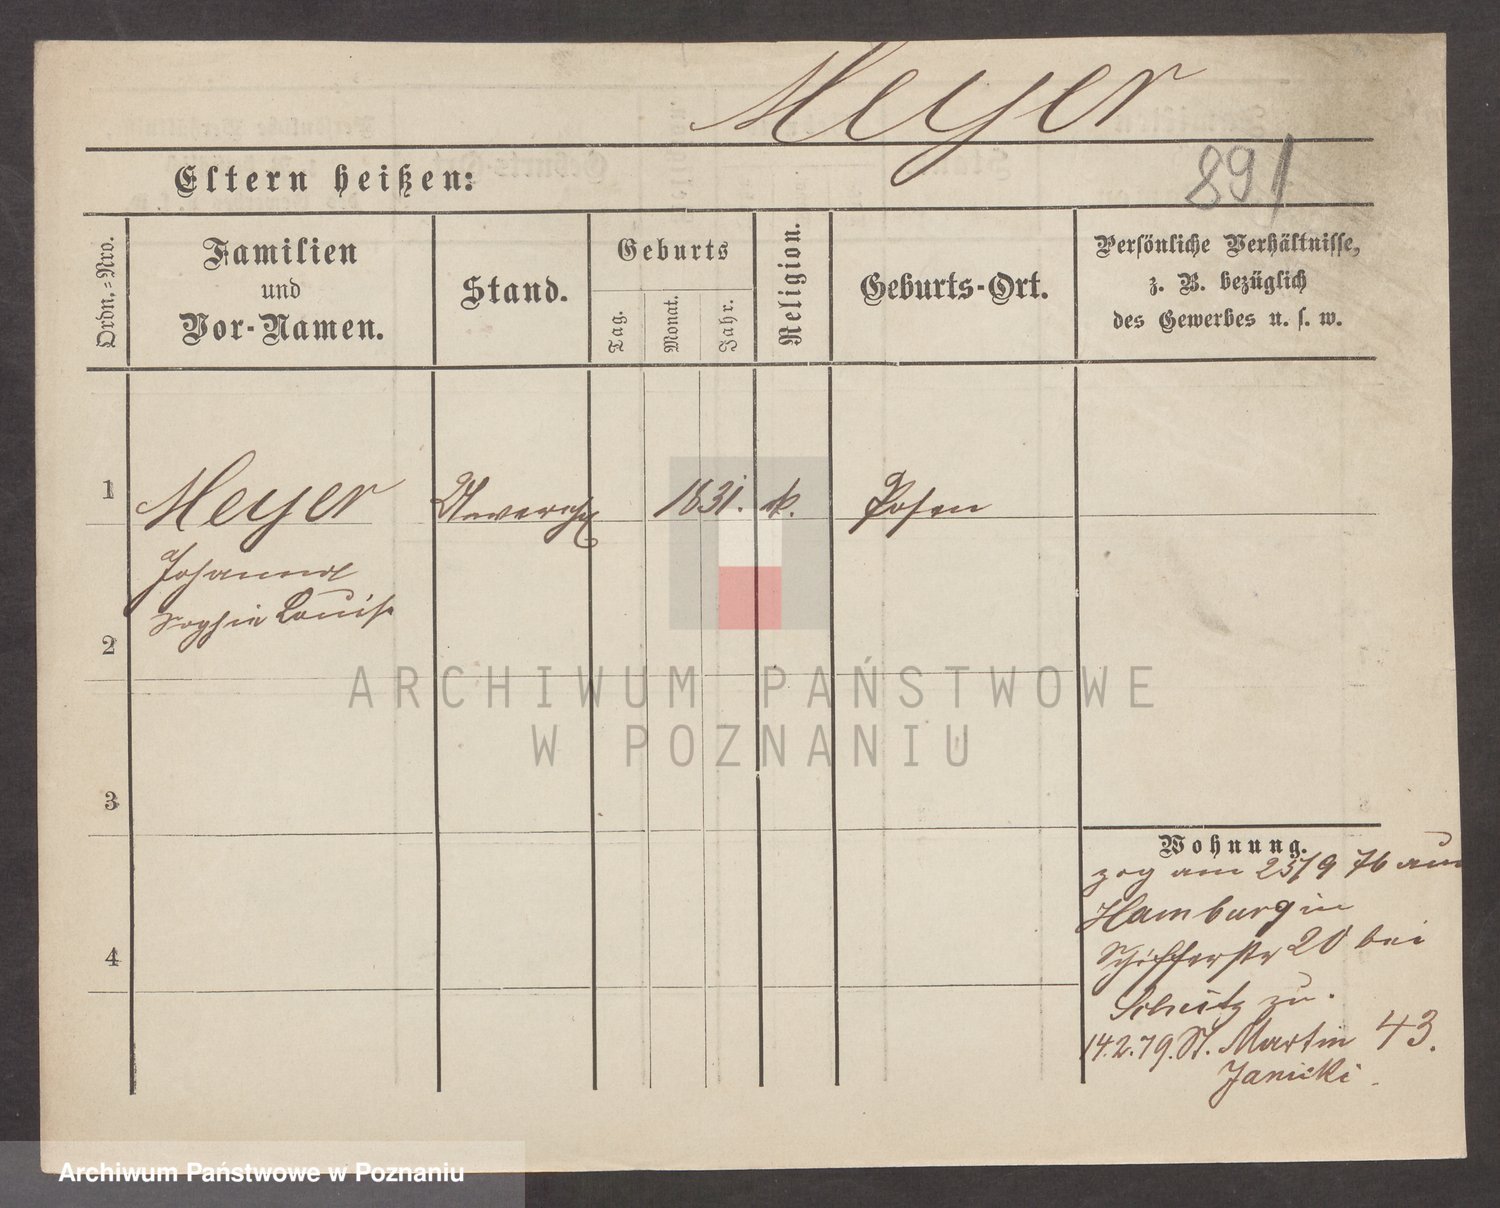 Meyer
Eltern heißen:
891
Ordn.-Nro.
Familien
und
Vor-Namen.
Stand.
Geburts
Tag.
Monat.
Jahr.
Religion.
Geburts-Ort.
Persönliche Verhältnisse,
z. B. bezüglich
des Gewerbes u. s. w.
1
Meyer
1831.
k.
Posen
Johanna
Sophie Louise
2
3
4
Wohnung.
zog am 25/9 76 aus
Hamburg in
Schifferstr 20 bei
Schütz zu.
14.2.79. St. Martin 43.
Janicki.
ARCHIWUM PAŃSTWOWE
W POZNANIU
Archiwum Państwowe w Poznaniu